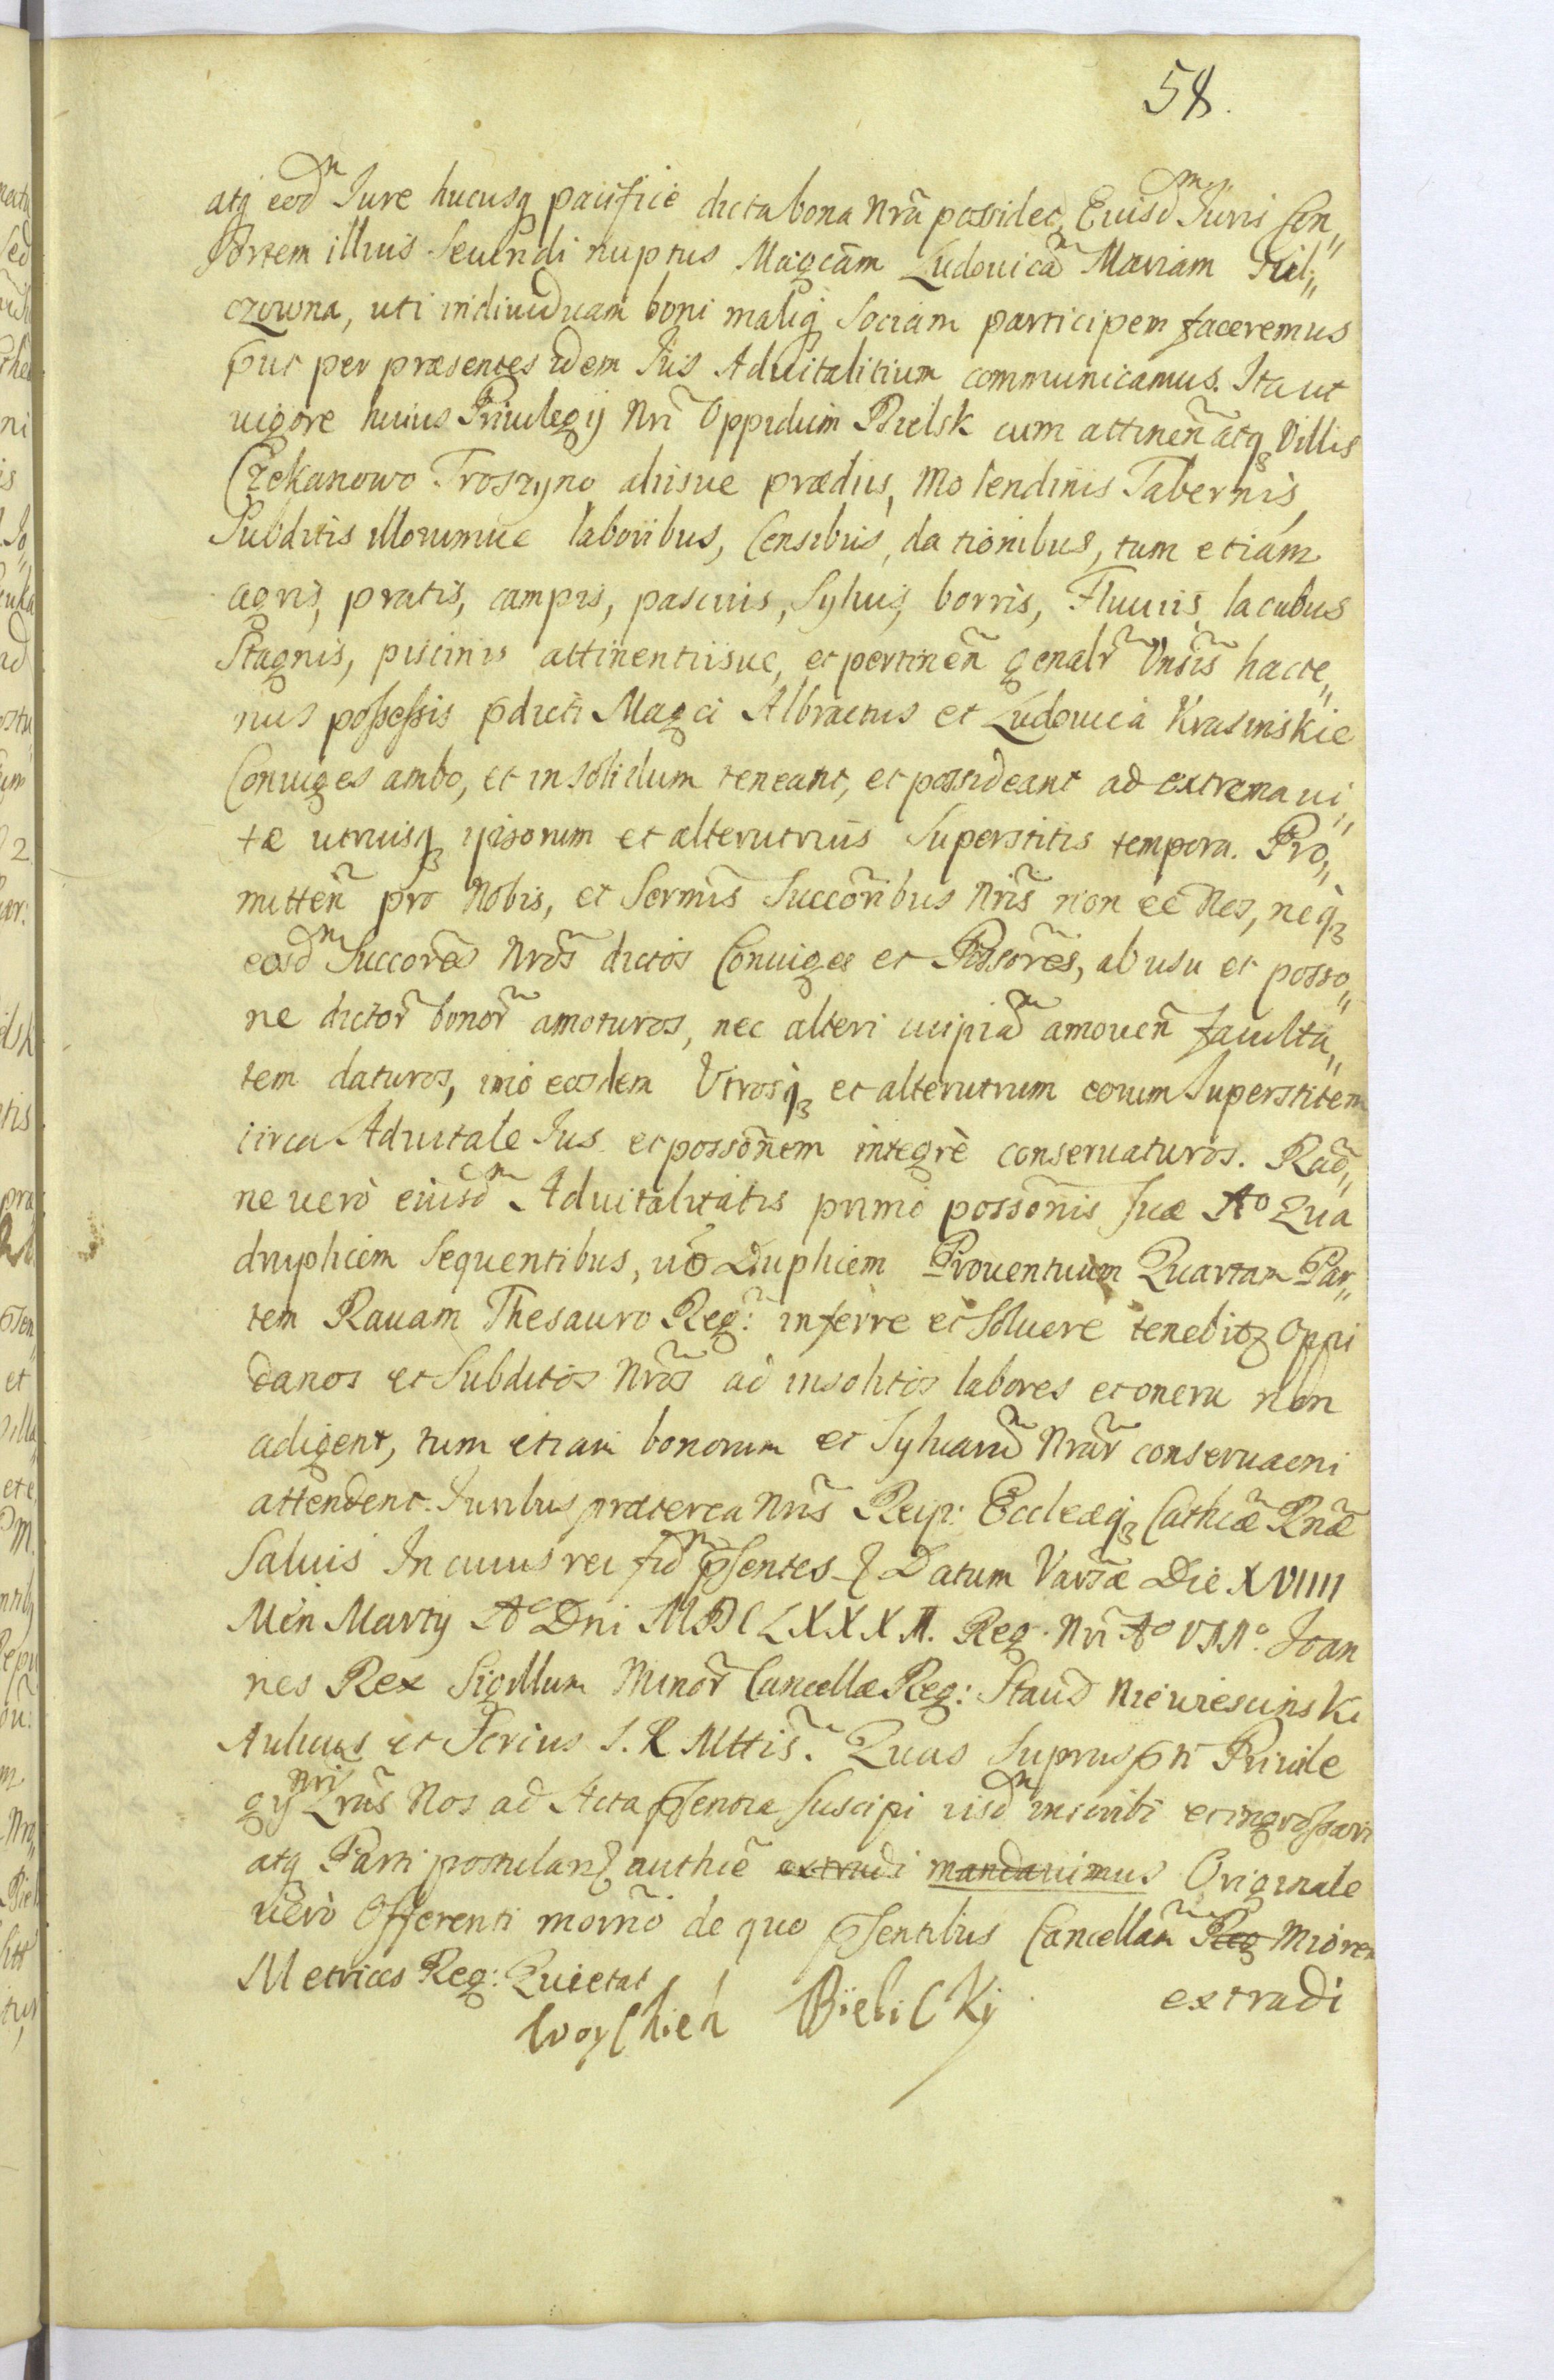 58.
atq eodm Jure hucusq pacificè dicta bona Nrã possidet, Euisdm Juris Con„
sortem illius Secundi nuptus Magcãm Ludouicãm Mariam
czowna, uti indiuiduam boni maliq̃ Sociam participem faceremus
put per præsentes idem Jus Aduitalitium communicamus. Ita ut
uigore huius Priuilegij Nri Oppidum Bielsk cum attineñ atq3 Villis
Czekanowo Troszyno aliisue prædiis, Molendinis Tabernis,
Subditis illorumue laboribus, Censibus, dationibus, tum etiam
agris, pratis, campis, pascuis, Syluis, borris, Fluuiis, lacubus
Stagnis, piscinis attinentiisue, et pertineñ genalr̃ Vnsĩs hacte„
nus possessis pdicti Magci Albractus et Ludouica Krasinskie
Coniuges ambo, et in solidum teneant, et possideant ad extrema ui„
tæ utriusq3 ipsorum et alterutrius Superstitis tempora. Pro„
mitteñ pro Nobis, et Sermĩs Succoribus Nrĩs non eẽ Nos, neq̃3
eosdm Succorẽs Nrõs dictos Coniuges et Possorẽs, ab usu et posso„
ne dictor̃ bonor̃ amoturos, nec alteri cuipiãm amoueñ faculta„
tem daturos, imò eosdem Vtrosq̃3 et alterutrum eorum Superstitem
circa Aduitale Jus et possõnem integrè conseruaturos. Raõ„
ne uerò eiusdm Aduitalitatis primò possõnis suæ Aº Qua
druplicem sequentibus, uõ Duplicem Prouentuum Quartam Par„
tem Rauam Thesauro Reg: inferre et Soluere tenebitq Oppi
danos et Subditos Nrõs ad insolitos labores et onera non
adigent, tum etiam bonorum et Syluarũm Nrar̃ conseruaõni
attendent. Juribus præterea Nrĩs Reip: Eccleæq̃3 Cathcæ Rnæ
Saluis In cuius rei fidm psentes Datum Varsæ Die XVIIII
Men Martij Aº Dni MDCLXXXII. Reg. Nri Aº VIIIº. Joan
nes Rex Sigillum Minor̃ Cancellæ Reg: Staud Niewiescinski
Aulicus et Scrius S. R Mttis̃. Quas Suprascpti Priuile
gij Nri Nos ad Acta psentia suscipi iisdm inscribi et ingrossari
atq Parti postulañ authcẽ extradi mandauimus Originale
uerò Offerenti de quo psentibus Cancellam Reg Miorem
Metrices Reg: Quietat
extradi
Woyciech Bielicky